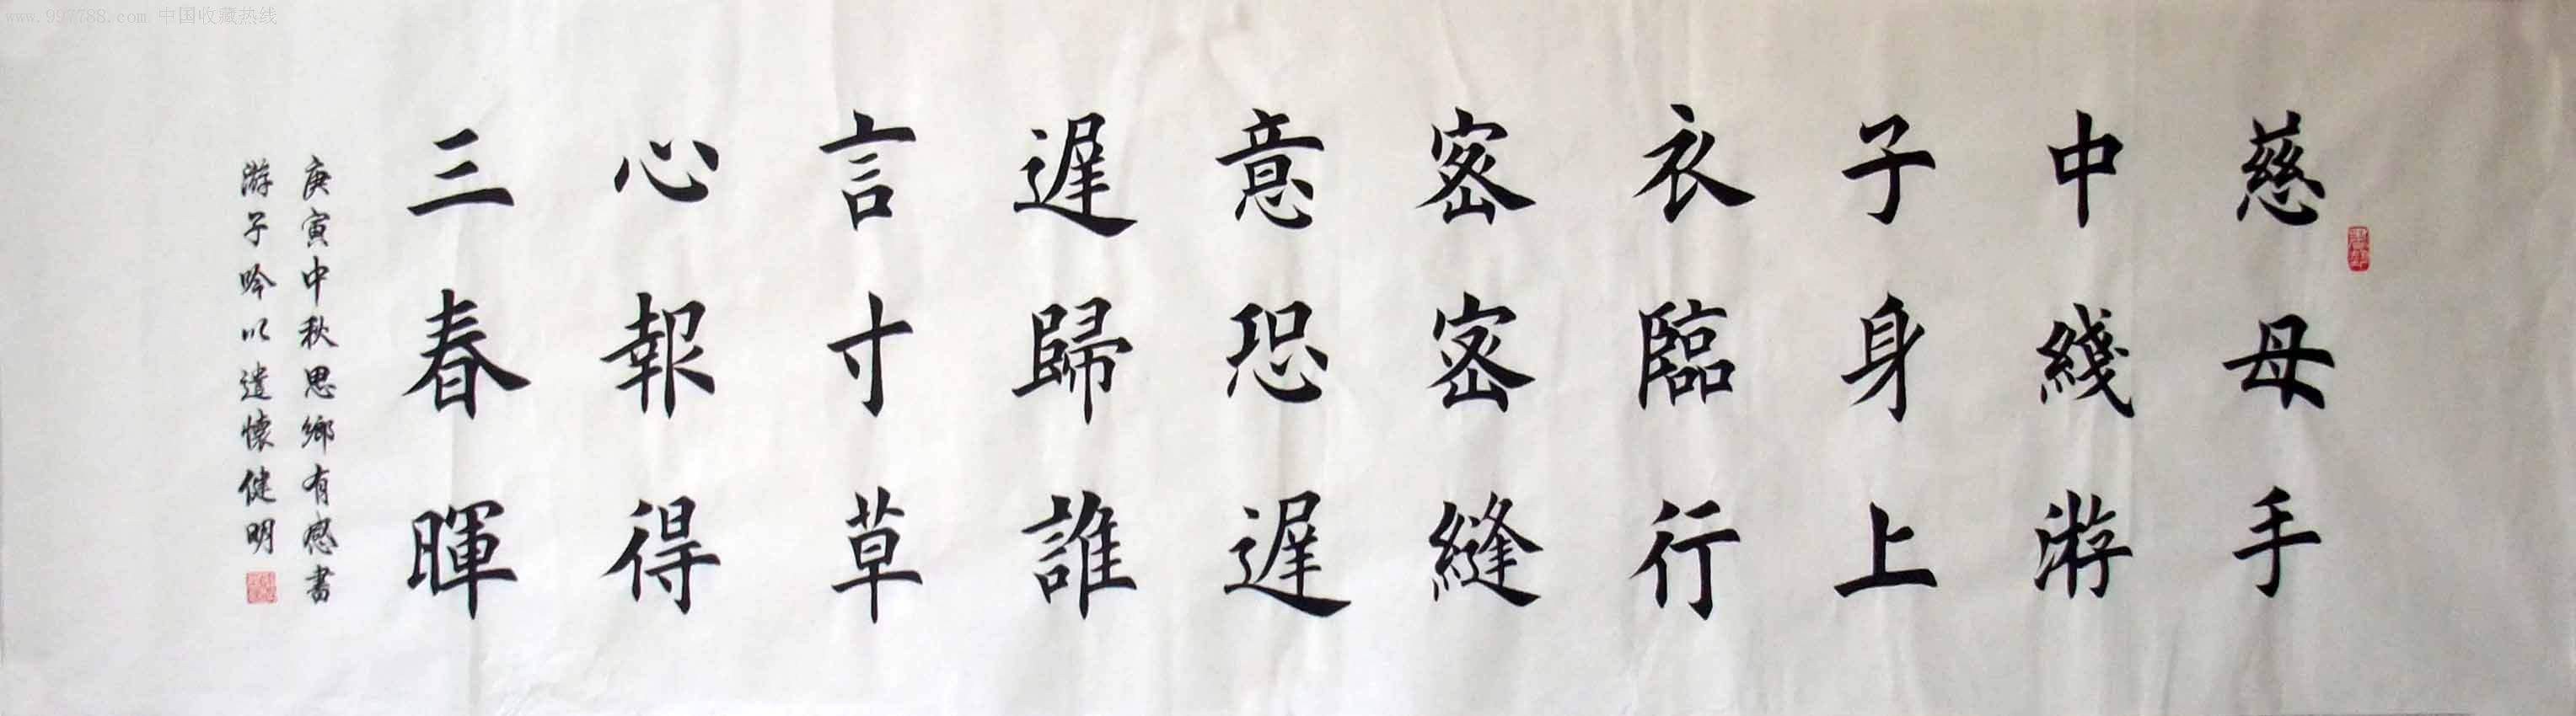 慈母手
中綫游
子身上
衣臨行
密密縫
意恐遲
遲歸誰
言寸草
心報得
三春暉
庚寅中秋思鄉有感書
游子吟以遣懷健明
www.997788.com 中国收藏热线